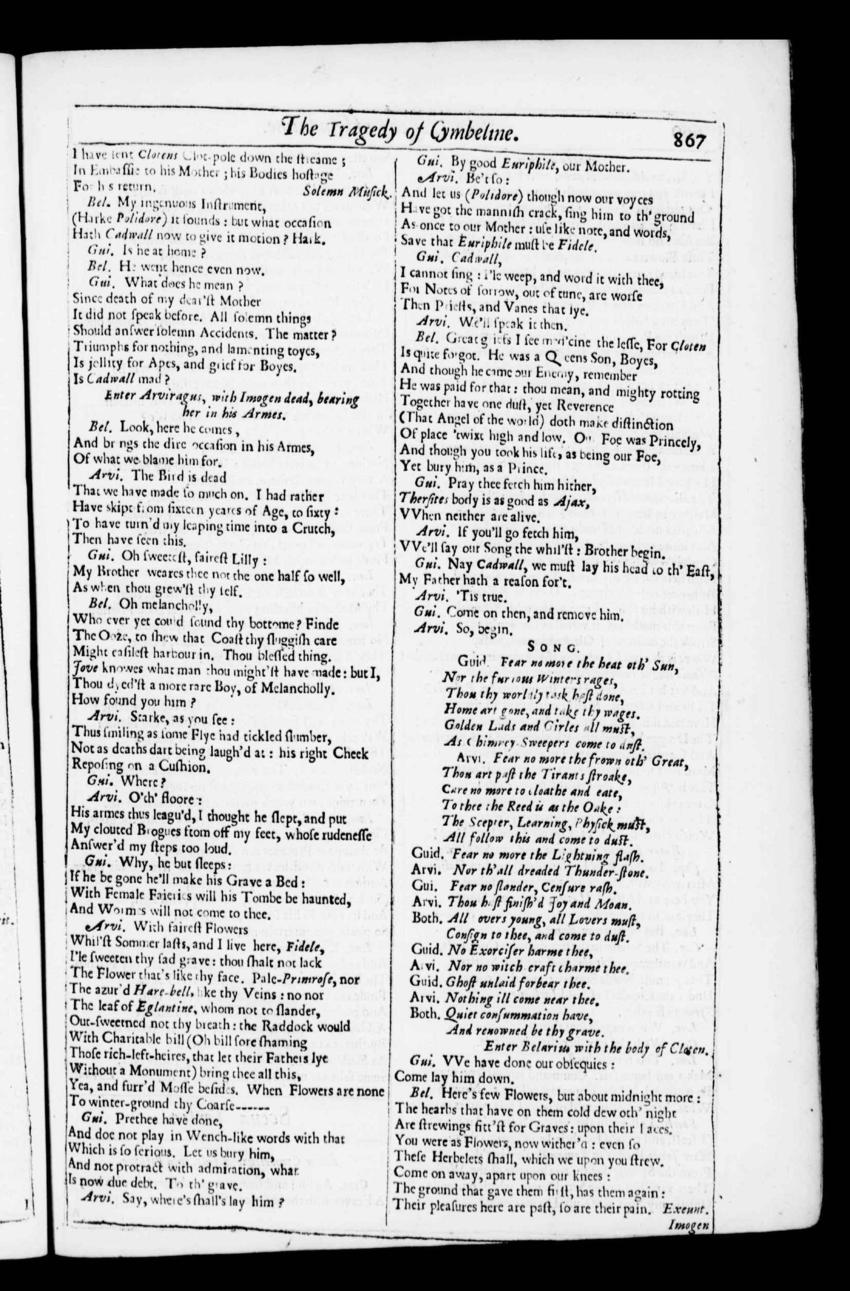 The Tragedy of Cymbeline.
867
I have sent Clotens Clot-pole down the streame;
In Embassie to his Mother; his Bodies hostage
For his return. Solemn Musick.
Bel. My ingenuous Instrument,
(Harke Polidore) it sounds: but what occasion
Hath Cadwall now to give it motion? Hark.
Gui. Is he at home?
Bel. He went hence even now.
Gui. What does he mean?
Since death of my dear'st Mother
It did not speak before. All solemn things
Should answer solemn Accidents. The matter?
Triumphs for nothing, and lamenting toyes,
Is jollity for Apes, and grief for Boyes.
Is Cadwall mad?
Enter Arviragus, with Imogen dead, bearing
her in his Armes.
Bel. Look, here he comes,
And brings the dire occasion in his Armes,
Of what we blame him for.
Arvi. The Bird is dead
That we have made so much on. I had rather
Have skipt from sixteen yeares of Age, to sixty:
To have turn'd my leaping time into a Crutch,
Then have seen this.
Gui. Oh sweetest, fairest Lilly:
My Brother weares thee not the one half so well,
As when thou grew'st thy self.
Bel. Oh melancholly,
Who ever yet could sound thy bottome? Finde
The Ooze, to shew that Coast thy sluggish care
Might easilest harbour in. Thou blessed thing.
Jove knowes what man thou might'st have made: but I,
Thou dyed'st a more rare Boy, of Melancholly.
How found you him?
Arvi. Starke, as you see:
Thus smiling as some Flye had tickled slumber,
Not as deaths dart being laugh'd at: his right Cheek
Reposing on a Cushion.
Gui. Where?
Arvi. O'th' floore:
His armes thus leagu'd, I thought he slept, and put
My clouted Brogues from off my feet, whose rudenesse
Answer'd my steps too loud.
Gui. Why, he but sleeps:
If he be gone he'll make his Grave a Bed:
With Female Faieries will his Tombe be haunted,
And Wormes will not come to thee.
Arvi. With fairest Flowers
Whil'st Sommer lasts, and I live here, Fidele,
I'le sweeten thy sad grave: thou shalt not lack
The Flower that's like thy face. Pale-Primrose, nor
The azur'd Hare-bell, like thy Veins: no nor
The leaf of Eglantine, whom not to slander,
Out-sweetned not thy breath: the Raddock would
With Charitable bill (Oh bill sore shaming
Those rich-left-heires, that let their Fathers lye
Without a Monument) bring thee all this,
Yea, and furr'd Mosse besides. When Flowers are none
To winter-ground thy Coarse------
Gui. Prethee have done,
And doe not play in Wench-like words with that
Which is so serious. Let us bury him,
And not protract with admiration, what
Is now due debt. To th' grave.
Arvi. Say, where's shall's lay him?
Gui. By good Euriphile, our Mother.
Arvi. Be't so:
And let us (Polidore) though now our voyces
Have got the mannish crack, sing him to th' ground
As once to our Mother: use like note, and words,
Save that Euriphile must be Fidele.
Gui. Cadwall,
I cannot sing: I'le weep, and word it with thee,
For Notes of sorrow, out of tune, are worse
Then Priests, and Vanes that lye.
Arvi. We'll speak it then.
Bel. Great griefs I see med'cine the lesse, For Cloten
Is quite forgot. He was a Queens Son, Boyes,
And though he came our Enemy, remember
He was paid for that: thou mean, and mighty rotting
Together have one dust, yet Reverence
(That Angel of the world) doth make distinction
Of place 'twixt high and low. Our Foe was Princely,
And though you took his life, as being our Foe,
Yet bury him, as a Prince.
Gui. Pray thee fetch him hither,
Thersites body is as good as Ajax,
VVhen neither are alive.
Arvi. If you'll go fetch him,
VVe'll say our Song the whil'st: Brother begin.
Gui. Nay Cadwall, we must lay his head to th' East,
My Father hath a reason for't.
Arvi. 'Tis true.
Gui. Come on then, and remove him.
Arvi. So, begin.
SONG.
Guid. Fear no more the heat oth' Sun,
Nor the furious Winters rages,
Thou thy worldly task hast done,
Home art gone, and take thy wages.
Golden Lads and Girles all must,
As Chimney-Sweepers come to dust.
Arvi. Fear no more the frown oth' Great,
Thou art past the Tirants stroake,
Care no more to cloathe and eate,
To thee the Reed is as the Oake:
The Scepter, Learning, Physick must,
All follow this and come to dust.
Guid. Fear no more the Lightning flash.
Arvi. Nor th'all dreaded Thunder-stone.
Gui. Fear no slander, Censure rash.
Arvi. Thou hast finish'd Joy and Moan.
Both. All Lovers young, all Lovers must,
Consign to thee, and come to dust.
Guid. No Exorciser harme thee,
Arvi. Nor no witch craft charme thee.
Guid. Ghost unlaid forbear thee.
Arvi. Nothing ill come near thee.
Both. Quiet consummation have,
And renowned be thy grave.
Enter Belarius with the body of Cloten.
Gui. VVe have done our obsequies:
Come lay him down.
Bel. Here's few Flowers, but about midnight more:
The hearbs that have on them cold dew oth' night
Are strewings fitt'st for Graves: upon their Faces.
You were as Flowers, now wither'd: even so
These Herbelets shall, which we upon you strew.
Come on away, apart upon our knees:
The ground that gave them first, has them again:
Their pleasures here are past, so are their pain. Exeunt.
Imogen